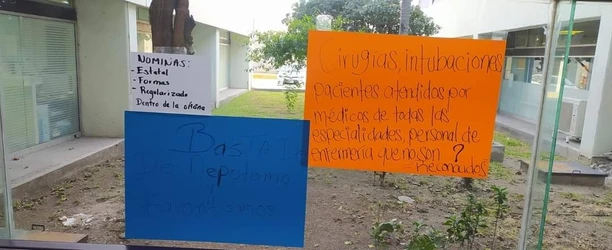 NOMINAS:
- Estatal
- Formas
- Regularizado
Dentro de la oficina
Cirugias, intubaciones
pacientes atendidos por
médicos de todas las
especialidades, personal de
enfermeria que no son ?
Reconocidos
BASTA DE
Nepotismo
Favoritismos